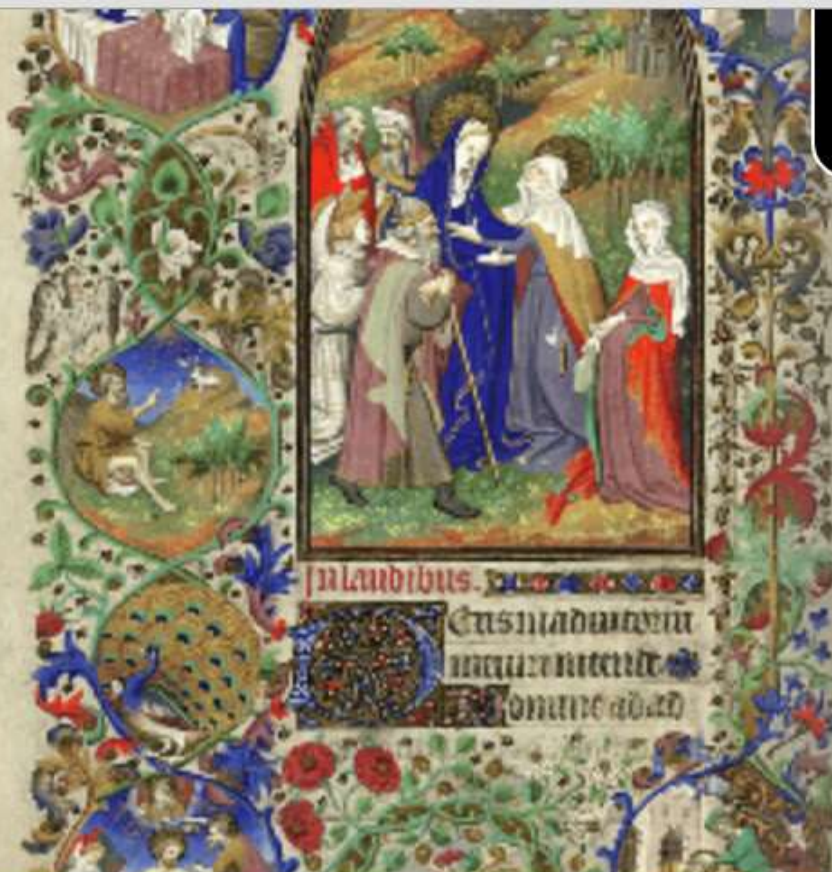 In laudibus.
Deus in adiutoriū
meum intende
Domine ad ad